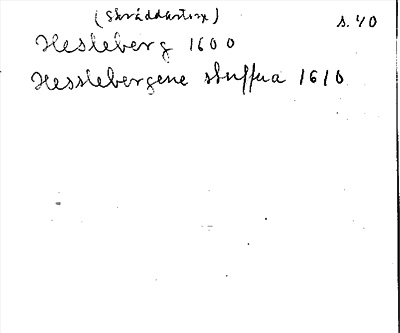 (Skräddartorp) s. 40
Hesleberg 1600
Hesslebergene skuffua 1610